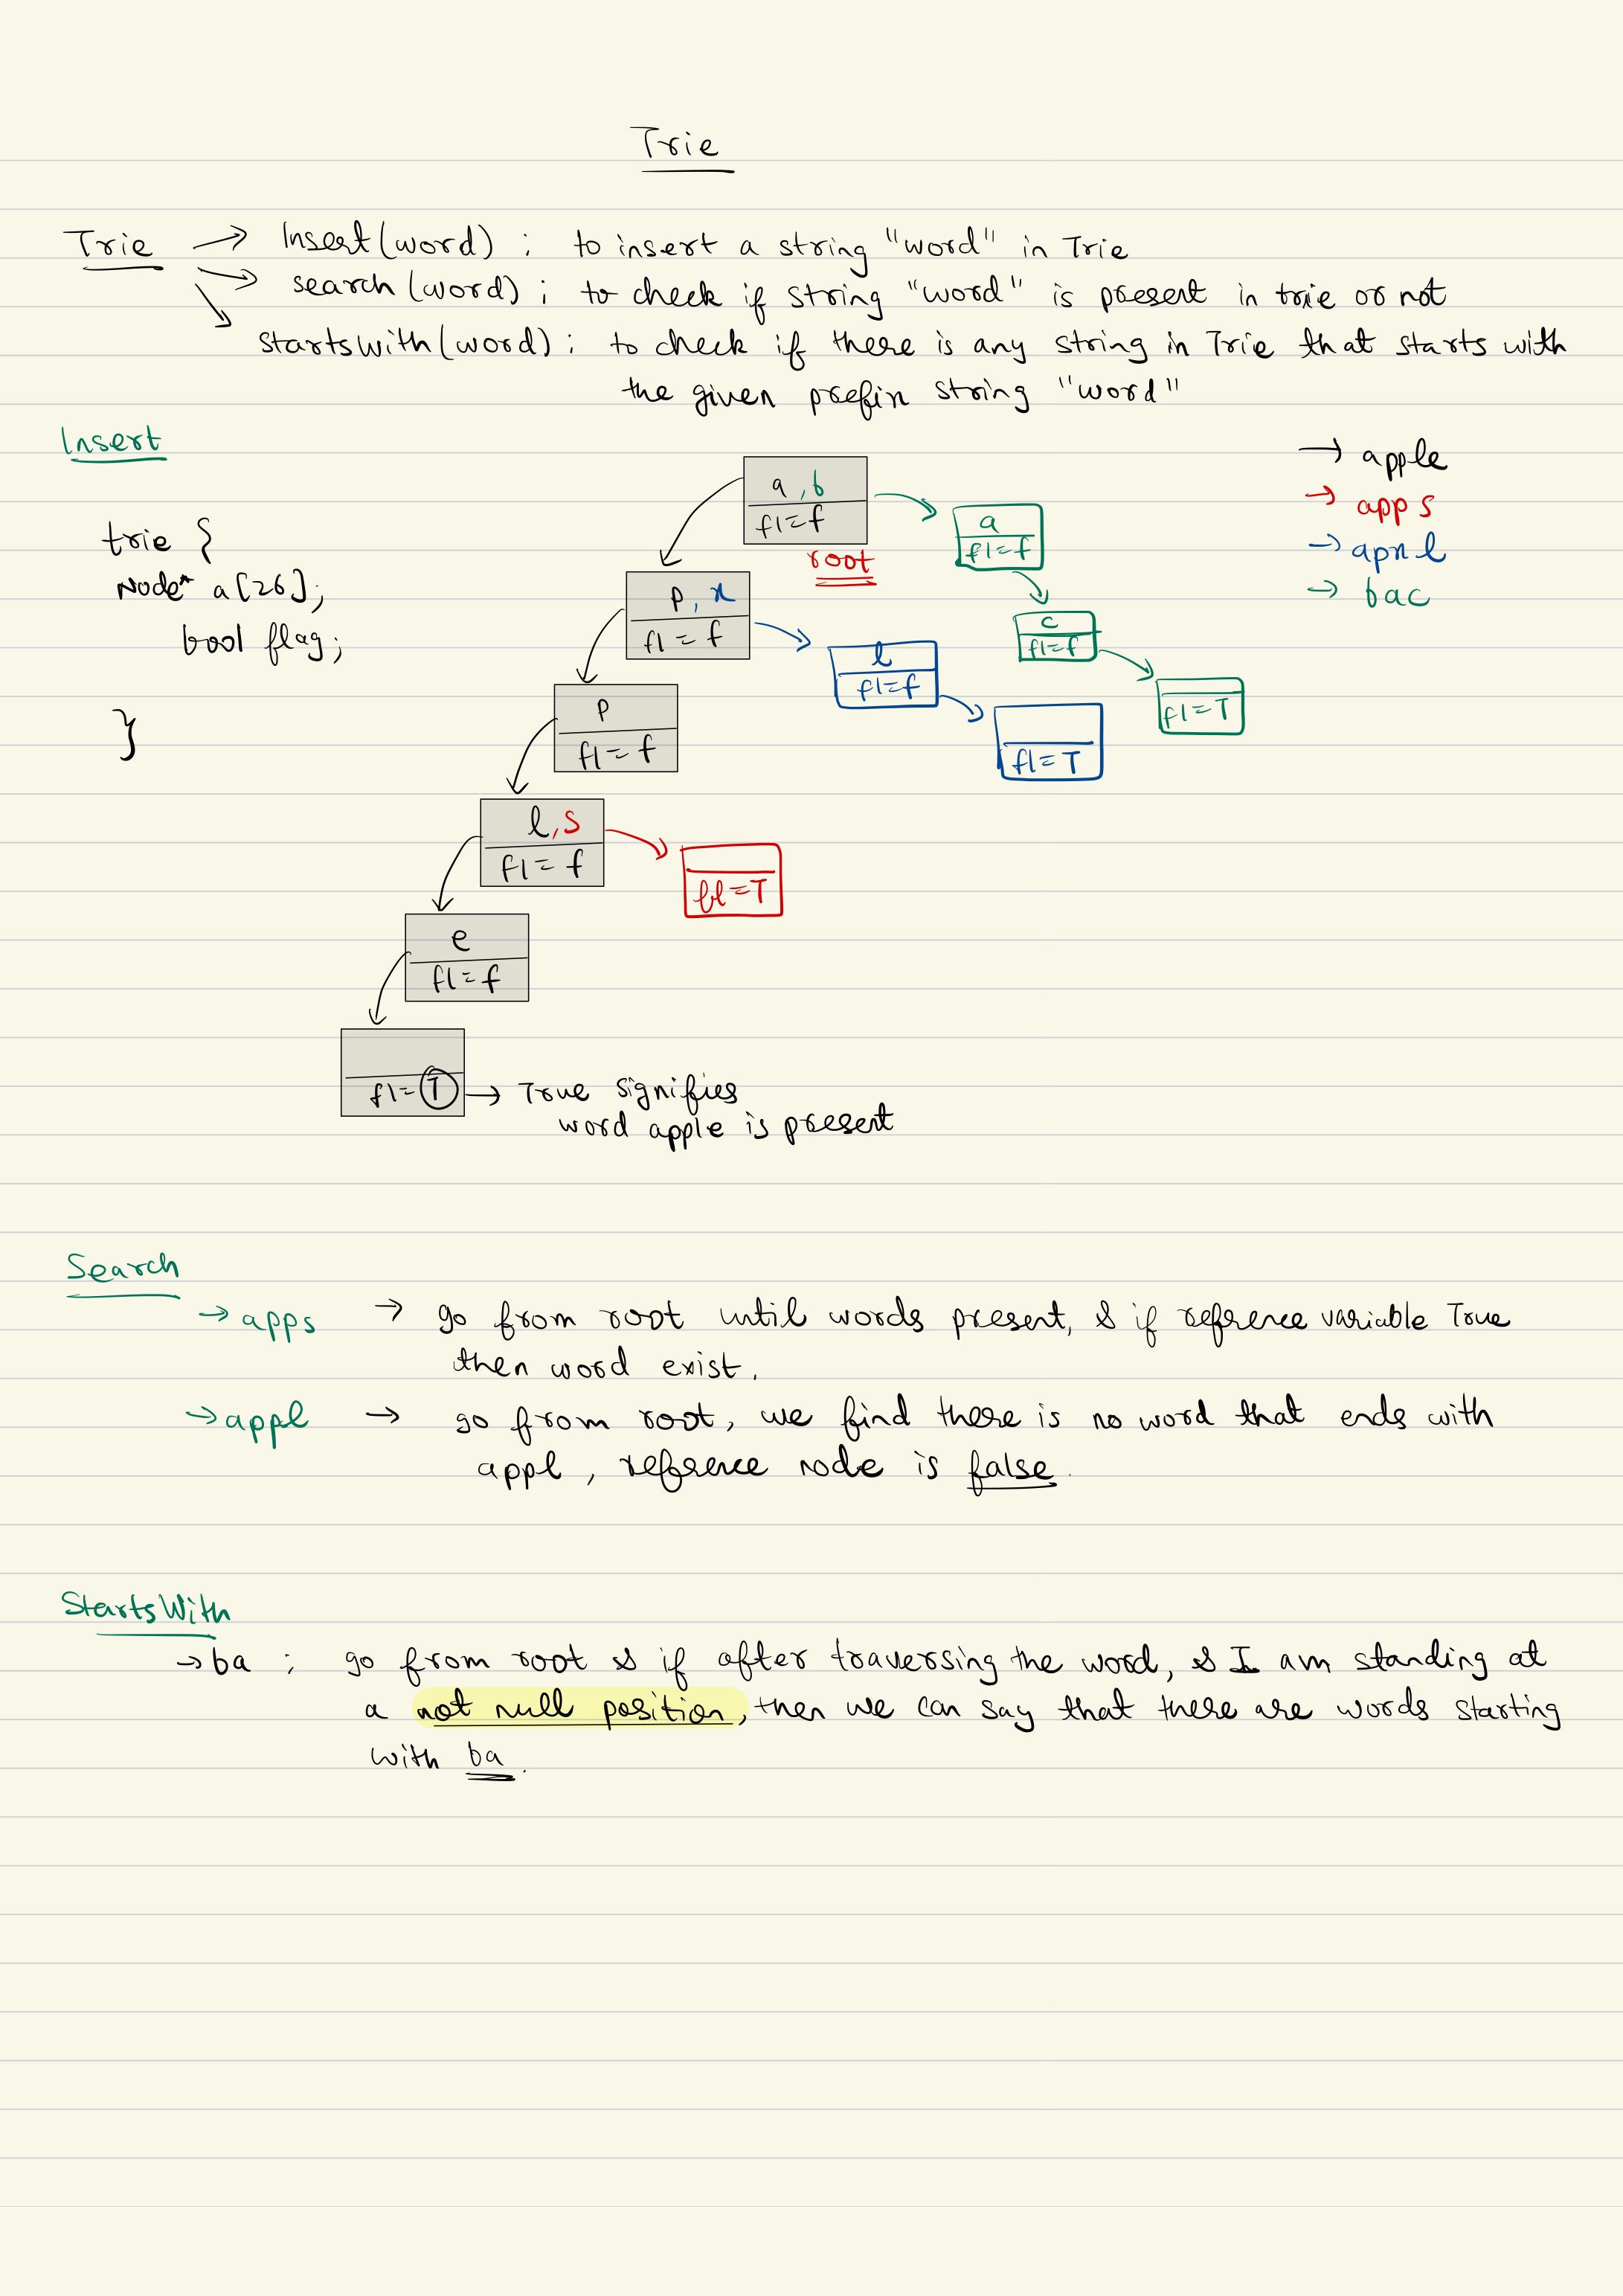 Trie
Trie → Insert(word) : to insert a string "word" in Trie
→ search(word) ; to check if string "word" is present in trie or not
→ startswith(word) : to check if there is any string in Trie that starts with
the given prefix string "word"
Insert
→ apple
→ apps
→ apxl
→ bac
trie {
Node* a[26];
bool flag;
}
a, b
fl=f
root
a
fl=f
p, x
fl = f
c
fl=f
l
fl=f
fl=T
p
fl= f
fl=T
l, s
fl= f
fl=T
e
fl=f
fl=T → True signifies
word apple is present
Search
→ apps → go from root until words present, & if reference variable True
then word exist.
→ appl → go from root, we find there is no word that ends with
appl, reference node is false.
StartsWith
→ ba : go from root & if after traversing the word, & I am standing at
a not null position, then we can say that there are words starting
with ba.